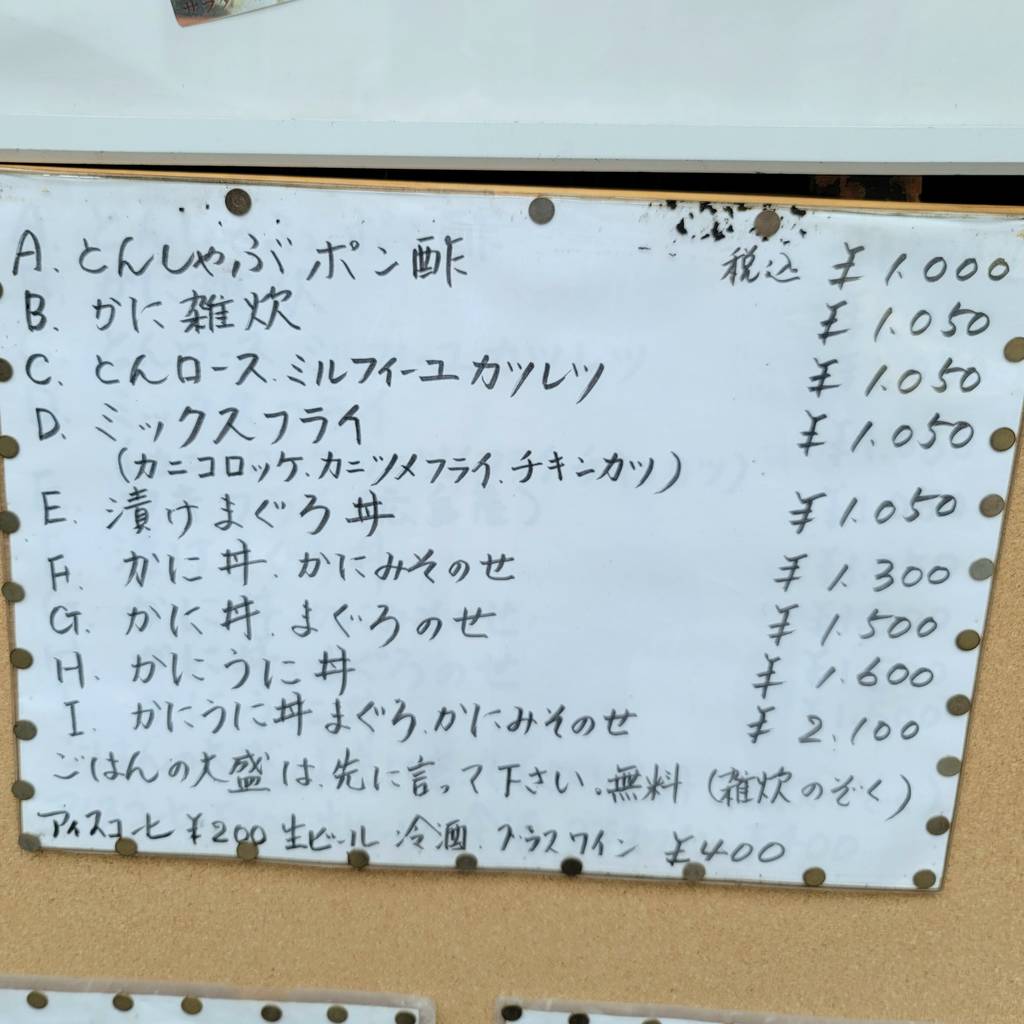 サラダ
A. とんしゃぶ ポン酢 税込 ¥1.000
B. かに雑炊 ¥1.050
C. とんロース.ミルフィーユカツレツ ¥1.050
D. ミックスフライ ¥1.050
(カニコロッケ.カニツメフライ.チキンカツ)
E. 漬けまぐろ丼 ¥1.050
F. かに丼.かにみそのせ ¥1.300
G. かに丼.まぐろのせ ¥1.500
H. かにうに丼 ¥1.600
I. かにうに丼まぐろ.かにみそのせ ¥2.100
ごはんの大盛は.先に言って下さい。無料(雑炊のぞく)
アイスコーヒ ¥200 生ビール 冷酒.グラスワイン ¥400